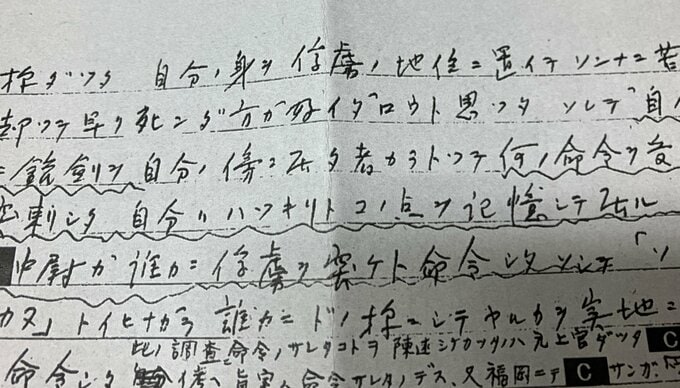 様ダツタ 自分ノ身ヲ俘虜ノ地位ニ置イテソンナニ苦
却ツテ早ク死ンダ方ガ好イダロウト思ツタ ソレデ自ノ
ニ銃剣ヲ自分ノ傍ニ居タ者カラトツテ何ノ命令ヲ受
出刺シタ 自分ハハツキリトコノ点ヲ記憶シテ居ル
中尉ガ誰カニ俘虜ヲ突ケト命令シタ ソシテ「ソ
カヌ」トイヒナガラ誰カニドノ様ニシテヤルカヲ実地ニ
此ノ調査ニ命令ノサレタコトヲ陳述シナカツタノハ元上官ダツタ C
命令シタ 備ハ真実ハ命令サレタノデス、又福岡ニテ C サンガ